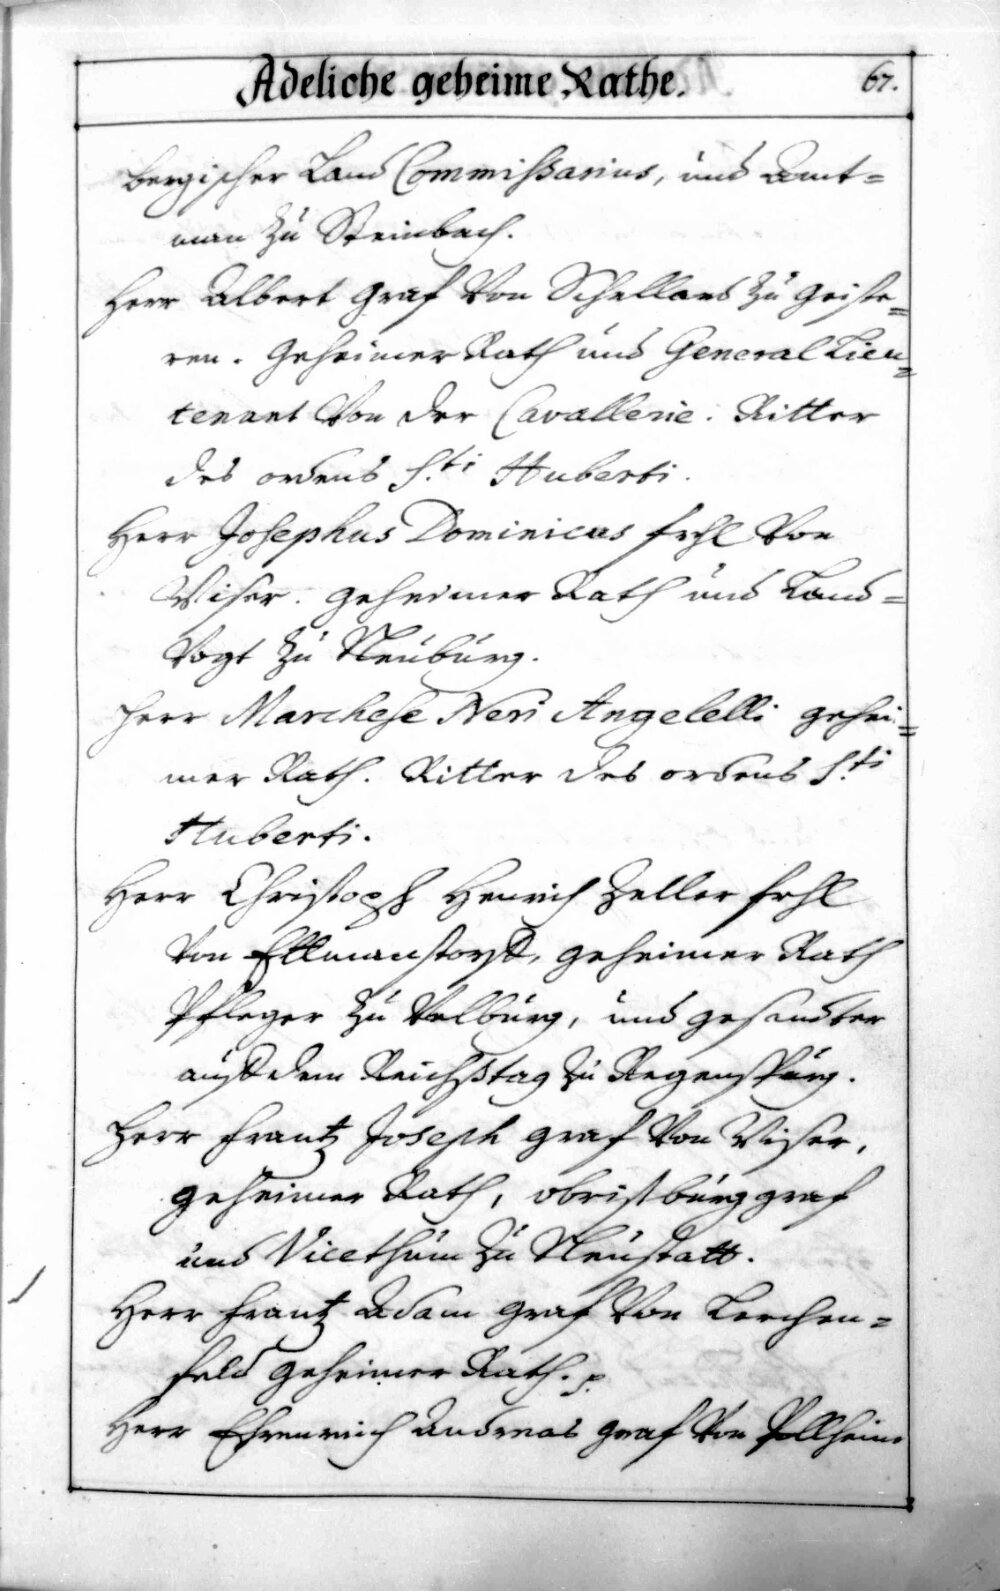 Adeliche geheime Rathe. 67.
bergischer Land Commißarius, und Amt=
man zu Steinbach.
Herr Albert Graf von Schellard zu Geiste=
ren. Geheimer Rath und General Lieu=
tenant von der Cavallerie. Ritter
des ordens S.ti Huberti.
Herr Josephus Dominicus frhl von
Wiser. geheimer Rath und Land=
Vogt zu Neuburg.
Herr Marchese Neri Angelelli gehei=
mer Rath. Ritter des ordens S.ti
Huberti.
Herr Christoph Henrich Zeller frhl
von Ettmanstorff, geheimer Rath
Pfleger zu Velburg, und gesandter
auff dem Reichßtag zu Regenspurg.
Herr Frantz Joseph graf von Wiser,
geheimer Rath, obristburggraf
und Vicethum zu Neustatt.
Herr Frantz Adam graf von Lerchen=
feld geheimer Rath. p.
Herr Ehrenreich Andreas graf von Pollheim